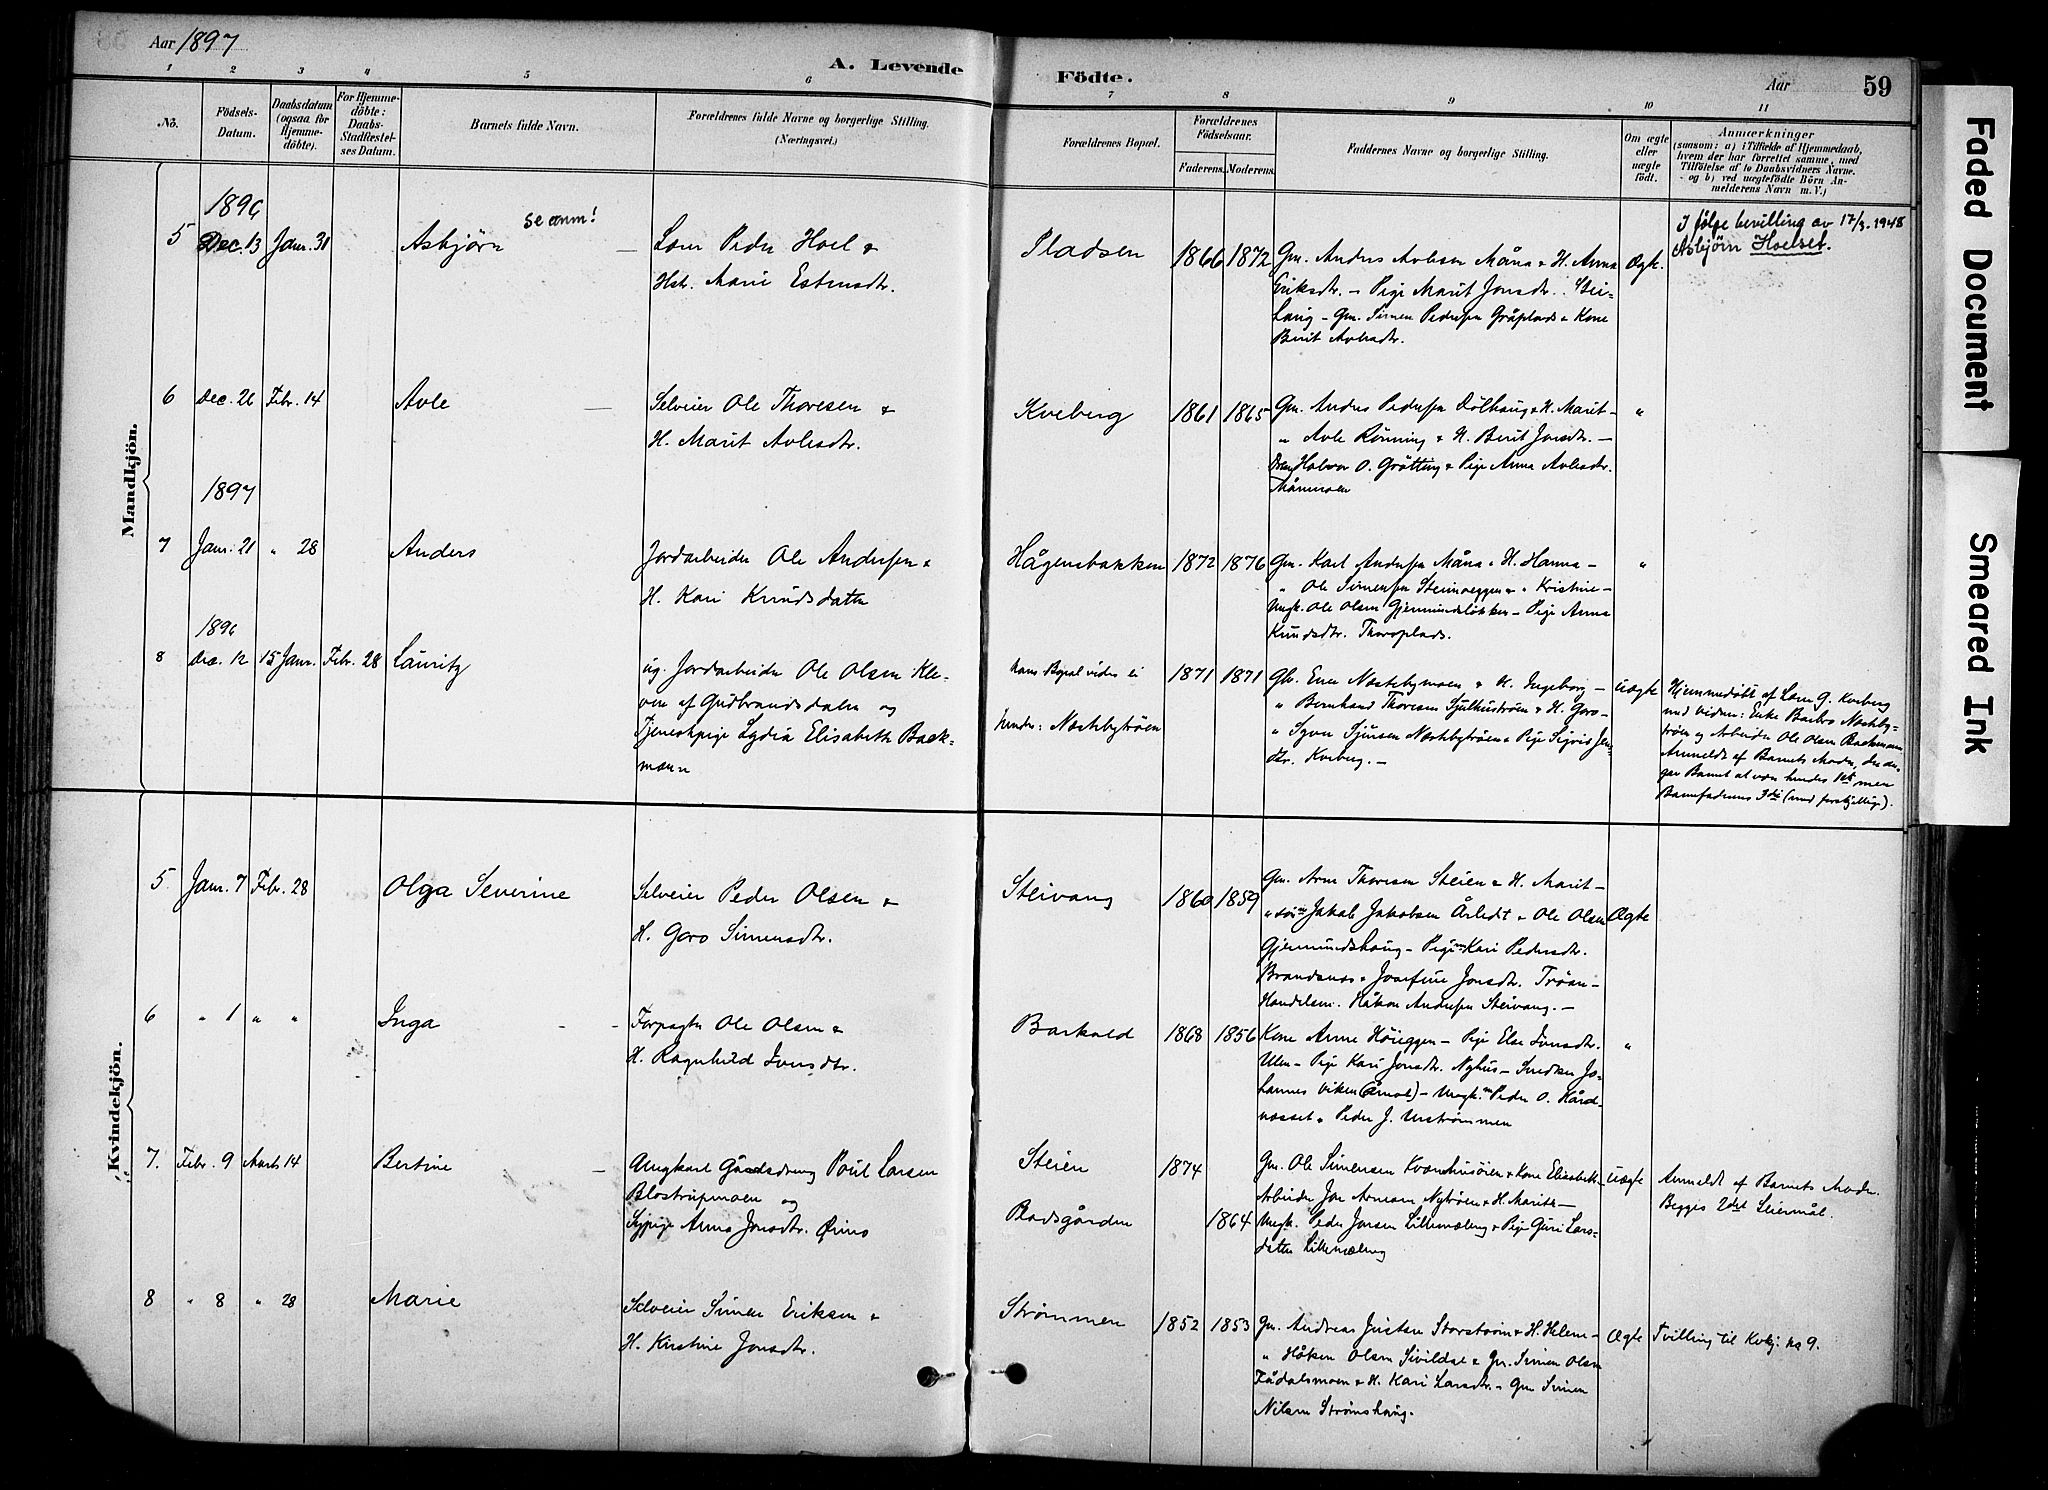 Aar 1897
A. Levende Födte.
Aar
59
1 2 3 4 5 6 7 8 9 10 11
No.
Födsels-Datum.
Daabsdatum (ogsaa för Hjemmedöbte).
For Hjemmedöbte: Daabs-Stadfæstelses Datum.
Barnets fulde Navn.
Forældrenes fulde Navne og borgerlige Stilling.
(Næringsvei.)
Forældrenes Bopæl.
Forældrenes Födselsaar.
Faderens. Moderens.
Faddernes Navne og borgerlige Stilling.
Om ægte eller uægte födt.
Anmærkninger
(saasom: a) i Tilfælde af Hjemmedaab,
hvem der har forrettet samme, med
Tilföielse af to Daabsvidners Navne.
og b) ved uægtefödte Börn An-
melderens Navn m. V.)
Mandkjön.
1896
5 Dec. 13 Janr. 31 Asbjörn se anm!
Peder Hoel &
Hstr. Marie Estensdtr.
Pladsen 1866 1872
Gm. Anders Avlesen Måna & H. Anna
Eriksdtr. – Pige Marit Jonsdtr. Stei-
haug – Gm. Simen Pedersen Gråplads & Kone
Berit Avlesdtr.
Ægt.
I følge bevilling av 17/3.1948
Asbjörn Hoelset.
6 Dec. 26 Febr. 14 Avle
Selveier Ole Thoresen &
H. Marit Avlesdtr.
Kveberg 1861 1865
Gm. Anders Pedersen Dölhaug & H. Marit –
" Avle Rönning & H. Berit Jonsdtr. –
Dreng Halvor O. Grötting & Pige Anna Avlesdtr.
Månmoen
"
1897
7 Janr. 21 " 28 Anders
Jordarbeider Ole Andersen &
H. Kari Knudsdatter
Hågensbakken 1872 1876
Gm. Karl Andersen Måna & H. Hanna –
" Ole Simensen Steimoeggen & " Kristine –
Ungk. Ole Olsen Gjermundsløkken – Pige Anna
Knudsdtr. Thoroplads.
"
1896
8 Dec. 12 15 Janr. Febr. 28 Lauritz
ug. Jordarbeider Ole Olsen Kle-
ven af Gudbrandsdalen og
Tjenestepige Lydia Elisabeth Back-
mann
hans Bopæl vides ei
hendes: Næstebytrøen
1871 1871
Gbr. Even Næstebymoen & H. Ingeborg –
" Bernhard Thoresen & H. Goro –
" Syver Sjursen Næstebytrøen & Pige Sigrid Jens-
dtr. Kveberg. –
Uægte
Hjemmedøbt af Lars G. Kveberg
med Vidner: Enke Barbro Næsteby-
trøen og Arbeider Ole Olsen Backmann
Anmeldt af Barnets Moder, der an-
gav Barnet at være hendes 1ste men
Barnefaderens 3die (med forskjellige).
Kvindekjön.
5. Janr. 7 Febr. 28 Olga Severine
Selveier Peder Olsen &
H. Goro Simensdtr.
Steivang 1860 1859
Gm. Arne Thoresen Steien & H. Marit –
Jakob Jakobsen Årledt & Ole Olsen
Gjermundshaug – Pigerne Kari Pedersdtr.
Brandsnes & Josefine Jonsdtr. Trøan –
Handelsm. Håkon Andersen Steivang. –
Ægte
6 " 1 " " Inga
Forpagter Ole Olsen &
H. Ragnhild Iversdtr.
Barkald 1868 1856
Kone Anne Höieggen – Pige Else Iversdtr.
Ulen – Pige Kari Jonsdtr. Nyhus – Smeden Jo-
hannes Viken (Åmot) – Ungk. Peder O. Hård-
næsset & Peder J. Urstrømmen
"
7. Febr. 9 Marts 14 Bertine
Ungkarl Gårdsdreng Poul Larsen
Blostrupmoen og
Sypige Anna Jonsdtr. Øvino
Steien 1874
Badsgården 1864
Gm. Ole Simensen Kvanhusöien & Kone Elisabeth –
Arbeider Jon Arnesen Nytrøen & H. Marith –
Ungk. Peder Jonsen Lillemæleng & Pige Guri Lars-
datter Lillemæleng
Uægte
Anmeldt af Barnets Moder.
Begges 2det Leiermål.
8 " 8 " 28 Marie
Selveier Simen Eriksen &
H. Kirstine Jonsdtr.
Strømmen 1852 1853
Gm. Andreas Justsen Storstrøm & H. Helene –
" Håken Olsen Sivildal & Gm. Simen Olsen
Fådalsmoen & H. Kari Larsdtr. – Gm Simen
Nilsen Strømshaug.
Ægte
Tvilling til Kvkj. No 9.
Faded Document
Smeared Ink